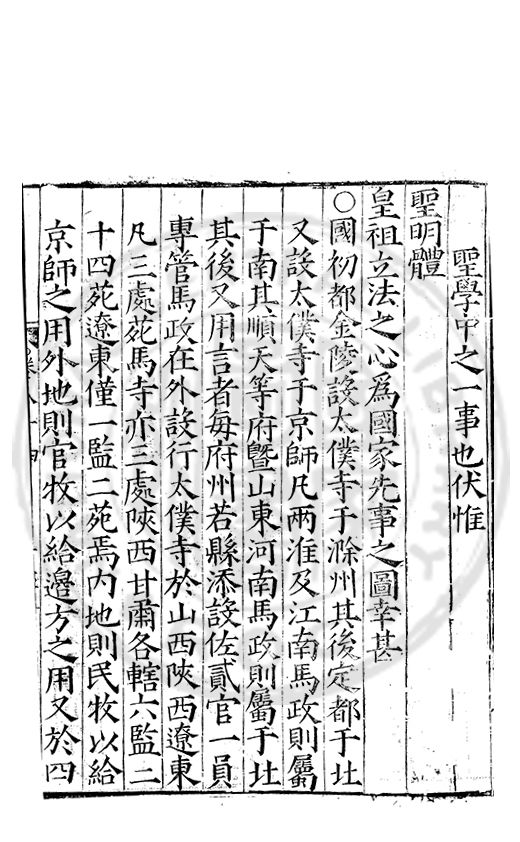 聖學中之一事也伏惟
聖明體
皇祖立法之心為國家先事之圖幸甚
○國初都金陵設太僕寺于滁州其後定都于北
又設太僕寺于京師凡兩淮及江南馬政則屬
于南其順天等府暨山東河南馬政則屬于北
其後又用言者每府州若縣添設佐貳官一員
專管馬政在外設行太僕寺於山西陝西遼東
凡三處苑馬寺亦三處陝西甘肅各轄六監二
十四苑遼東僅一監二苑焉內地則民牧以給
京師之用外地則官牧以給邊方之用又於四